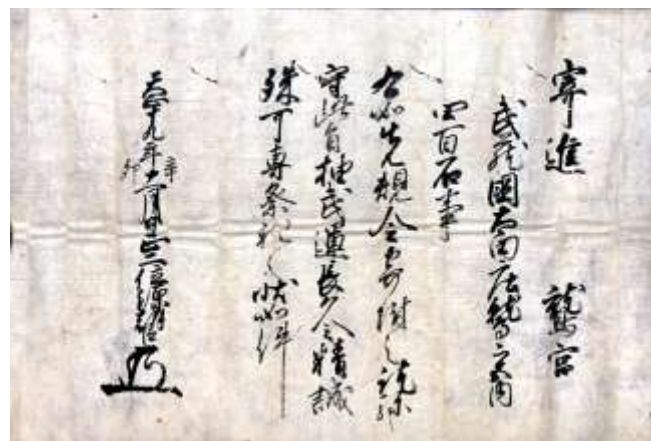 寄進　鷲宮
武蔵國太田庄鷲宮之内
四百石事
右如先規令寄附之訖弥
守此旨抽武運長久精誠
殊可専祭祀之状如件
天正十九年辛卯十一月日正二位源朝臣